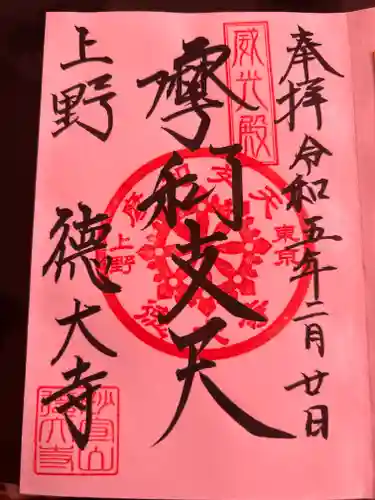 奉拝
令和五年二月廿日
威光殿
摩利支天
東京
上野
上野
徳大寺